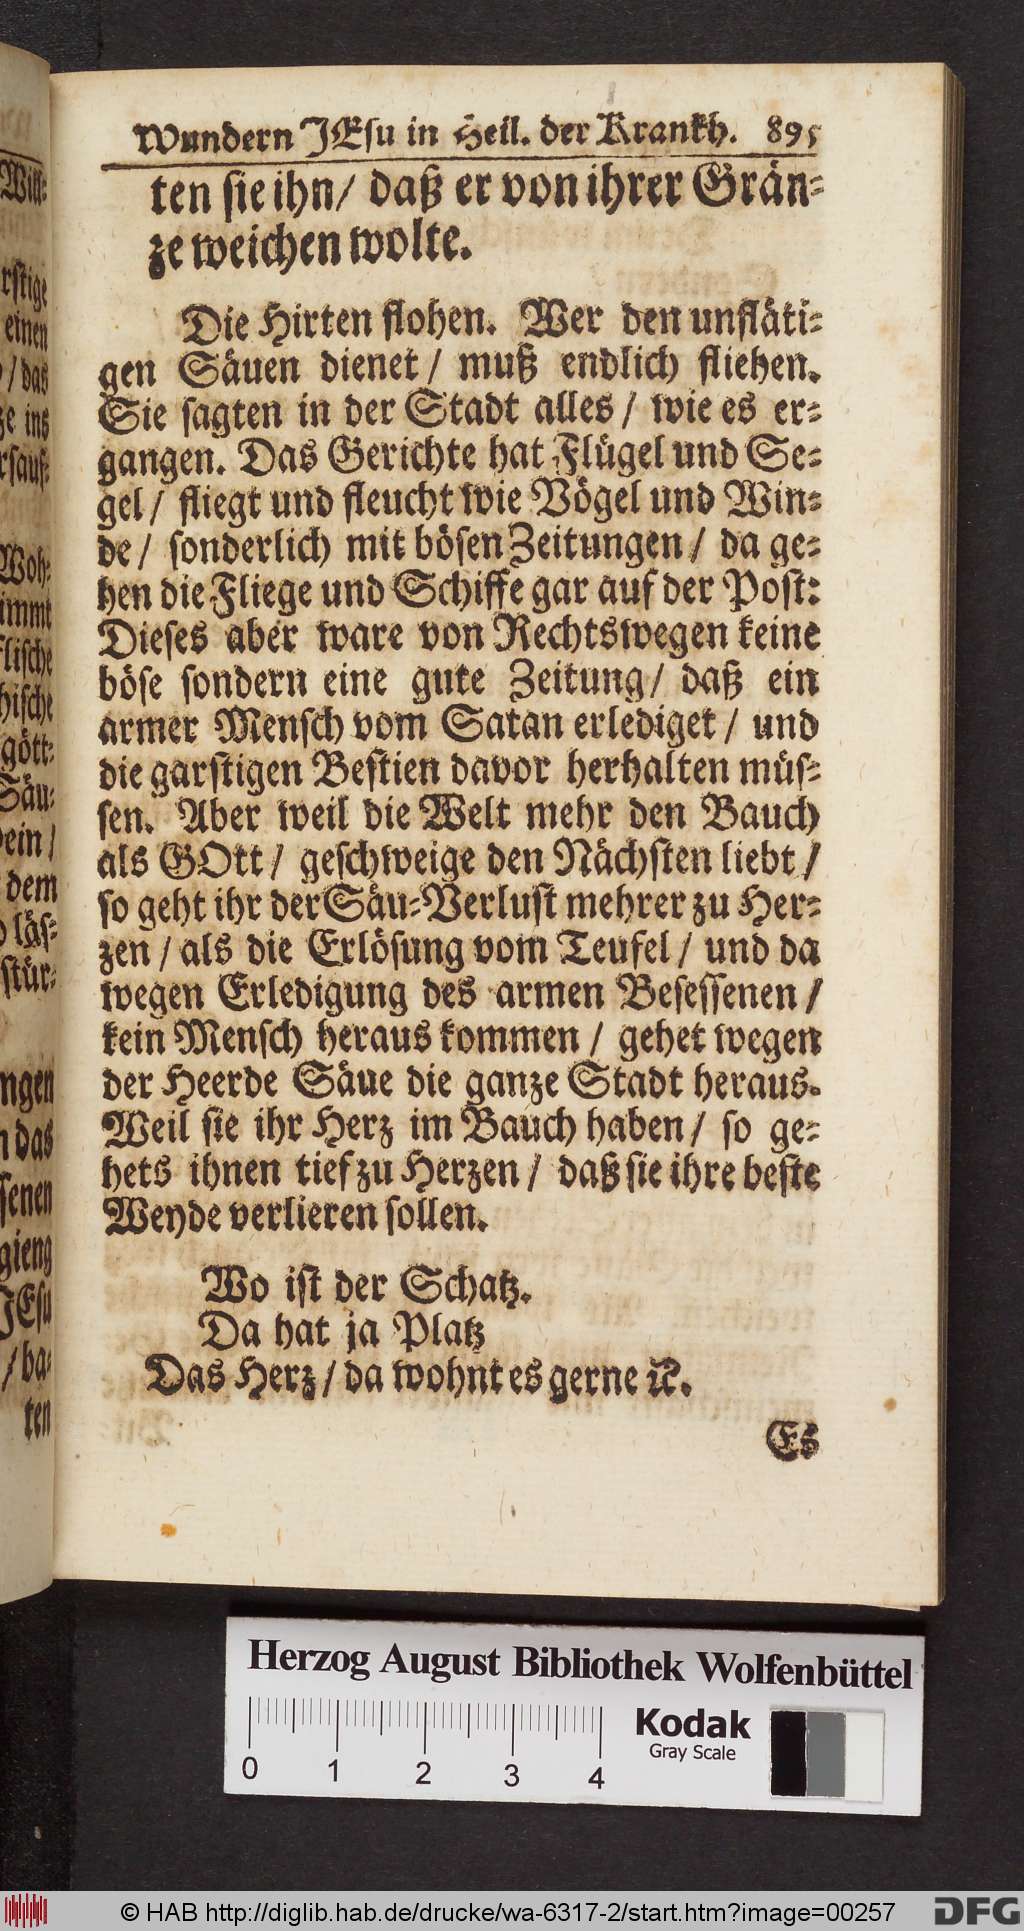 Wundern JEsu in Heil. der Krankh. 895
ten sie ihn/ daß er von ihrer Grän-
ze weichen wolte.
Die Hirten flohen. Wer den unfläti-
gen Säuen dienet/ muß endlich fliehen.
Sie sagten in der Stadt alles/ wie es er-
gangen. Das Gerichte hat Flügel und Se-
gel/ fliegt und fleucht wie Vögel und Win-
de/ sonderlich mit bösen Zeitungen/ da ge-
hen die Fliege und Schiffe gar auf der Post:
Dieses aber ware von Rechtswegen keine
böse sondern eine gute Zeitung/ daß ein
armer Mensch vom Satan erlediget/ und
die garstigen Bestien davor herhalten müs-
sen. Aber weil die Welt mehr den Bauch
als GOtt/ geschweige den Nächsten liebt/
so geht ihr der Säu-Verlust mehrer zu Her-
zen/ als die Erlösung vom Teufel/ und da
wegen Erledigung des armen Besessenen/
kein Mensch heraus kommen/ gehet wegen
der Heerde Säue die ganze Stadt heraus.
Weil sie ihr Herz im Bauch haben/ so ge-
hets ihnen tief zu Herzen/ daß sie ihre beste
Weyde verlieren sollen.
Wo ist der Schatz.
Da hat ja Platz
Das Herz/ da wohnt es gerne ꝛc.
Es
Will-
rstige
einen
/ das
ze ins
rsauf-
Woh-
immt
flische
hische
gött-
Säu-
ein/
dem
läs-
stür-
ngen
das
senen
gieng
JEsu
/ ba-
ten
Herzog August Bibliothek Wolfenbüttel
Kodak
Gray Scale
0 1 2 3 4
© HAB http://diglib.hab.de/drucke/wa-6317-2/start.htm?image=00257
DFG